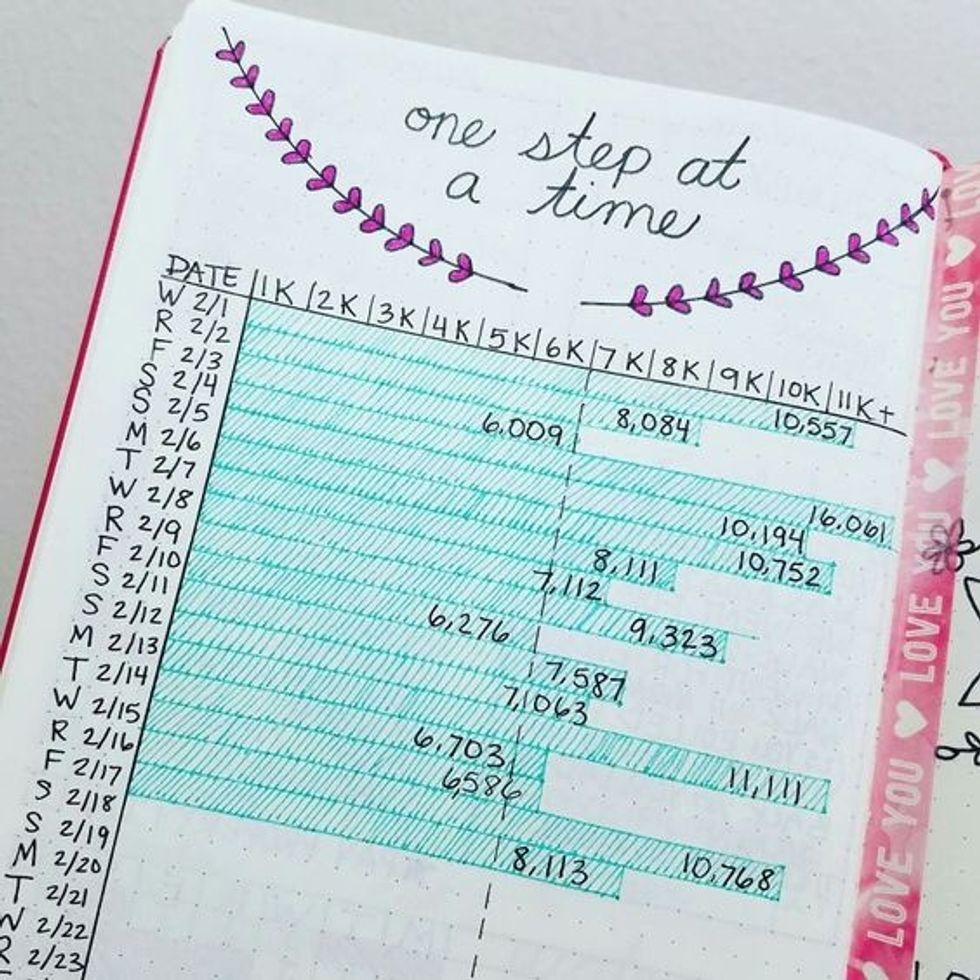 one step at
a time
DATE |1K |2K |3K |4K |5K |6K |7K |8K |9K |10K |11K+
W 2/1 10,557
R 2/2 8,084
F 2/3 6.009
S 2/4 16.061
S 2/5 10,194
M 2/6 10,752
T 2/7 8,111
W 2/8 7,112
R 2/9 9,323
F 2/10 6,276
S 2/11 7,587
S 2/12 7,063
M 2/13 11,111
T 2/14 6,703
W 2/15 6,586
R 2/16 10,768
F 2/17 8,113
S 2/18
S 2/19
M 2/20
T 2/21
W 2/22
R 2/23
LOVE YOU ♥ LOVE YOU ♥ LOVE YOU ♥ LOV